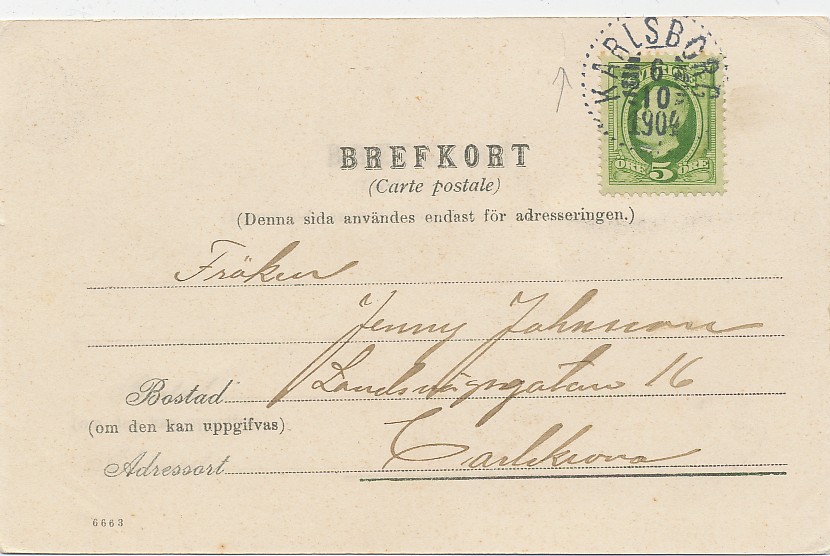 KARLSBORG
6
10
1904
SVERIGE
ÖRE 5 ÖRE
BREFKORT
(Carte postale)
(Denna sida användes endast för adresseringen.)
Fröken
Jenny Johnsson
Bostad Landsvägsgatan 16
(om den kan uppgifvas)
Adressort Carlskrona
6663